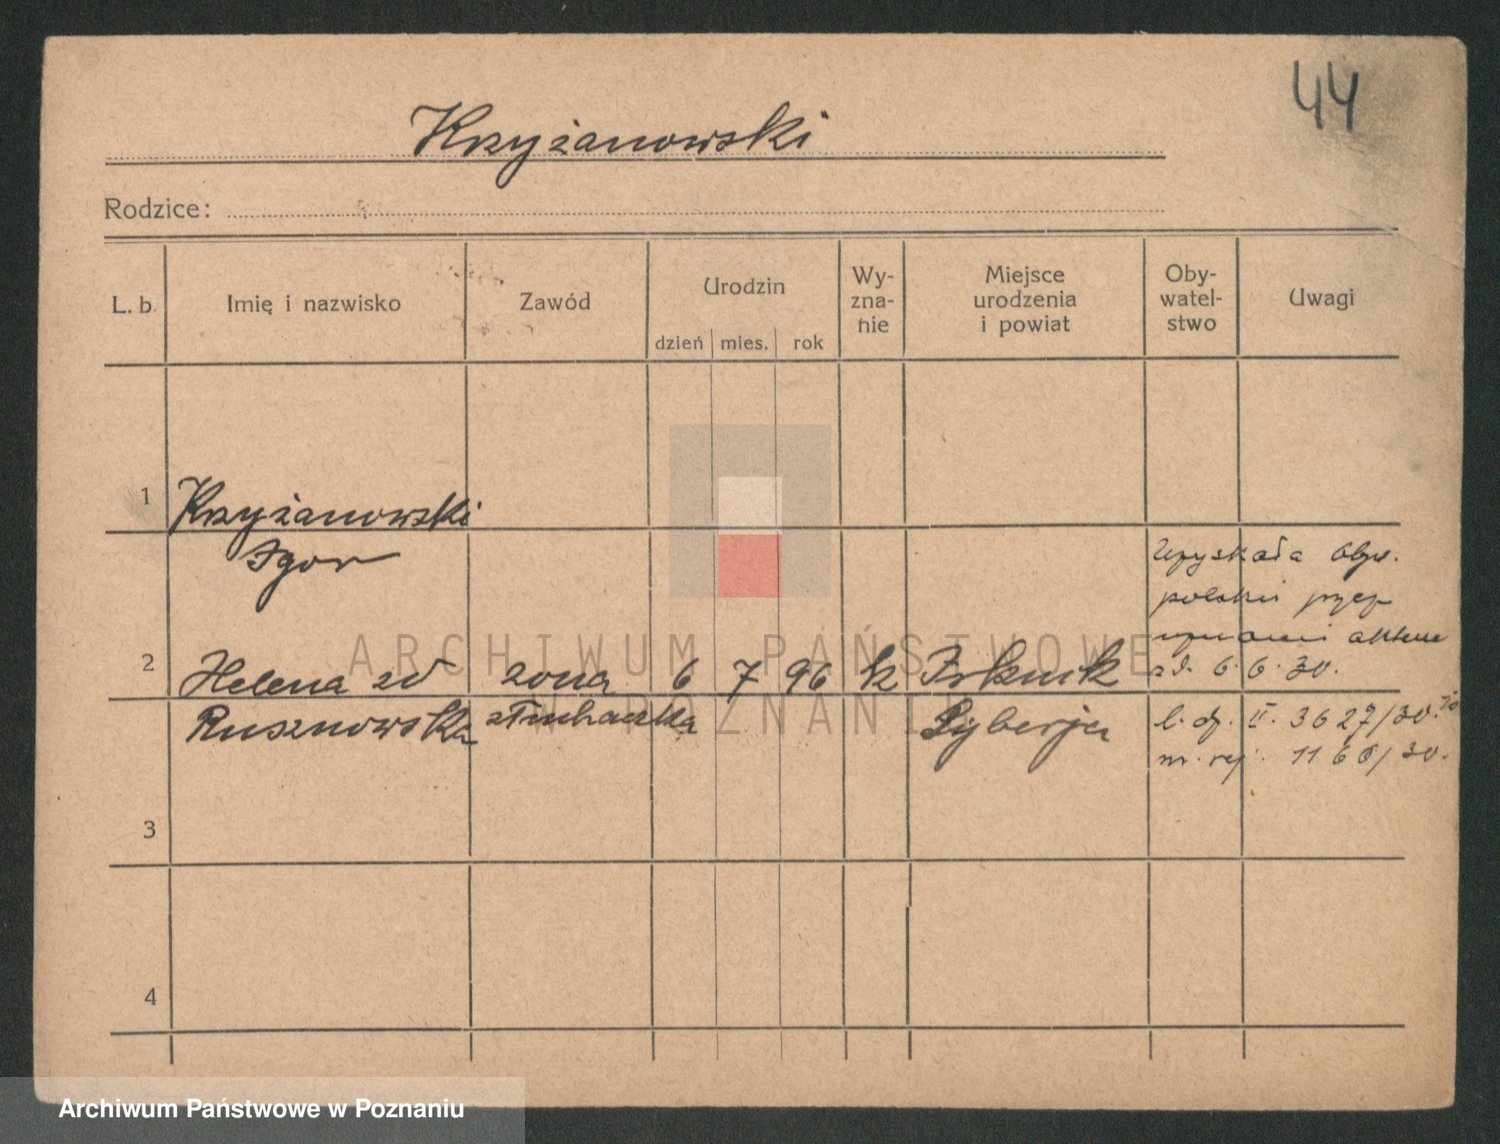 44
Krzyżanowski
Rodzice:
L. b.
Imię i nazwisko
Zawód
Urodzin
dzień mies. rok
Wy-
zna-
nie
Miejsce
urodzenia
i powiat
Oby-
watel-
stwo
Uwagi
1 Krzyżanowski
Igor
Uzyskała Obyw.
polskie przez
uznanie aktem
2 Helena zd żona 6 7 96 k Irkuck z d. 6.6.30.
Rusznowska słuchaczka Syberja l. dz. II. 3627/30.
nr. rej. 1166/30.
3
4
ARCHIWUM PAŃSTWOWE
W POZNANIU
Archiwum Państwowe w Poznaniu